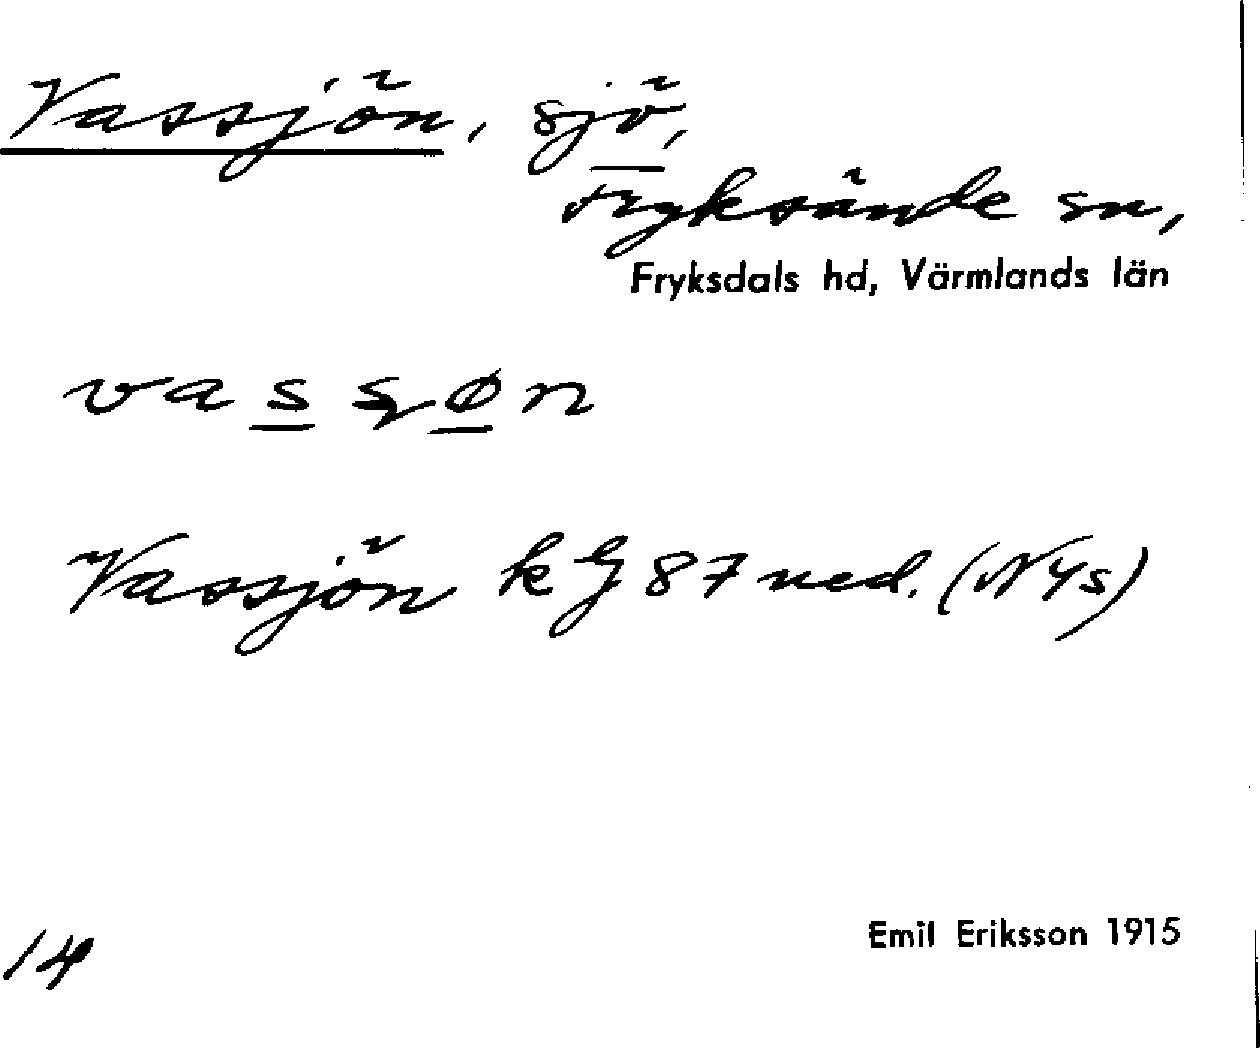 Vassjön, sjö,
Fryksände sn,
Fryksdals hd, Värmlands län
Vassjön k G 87 ned. (NYs)
Emil Eriksson 1915
14